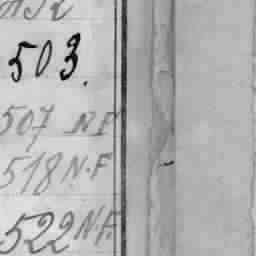 503.
507 N.F
518 N.F
522 N.F.